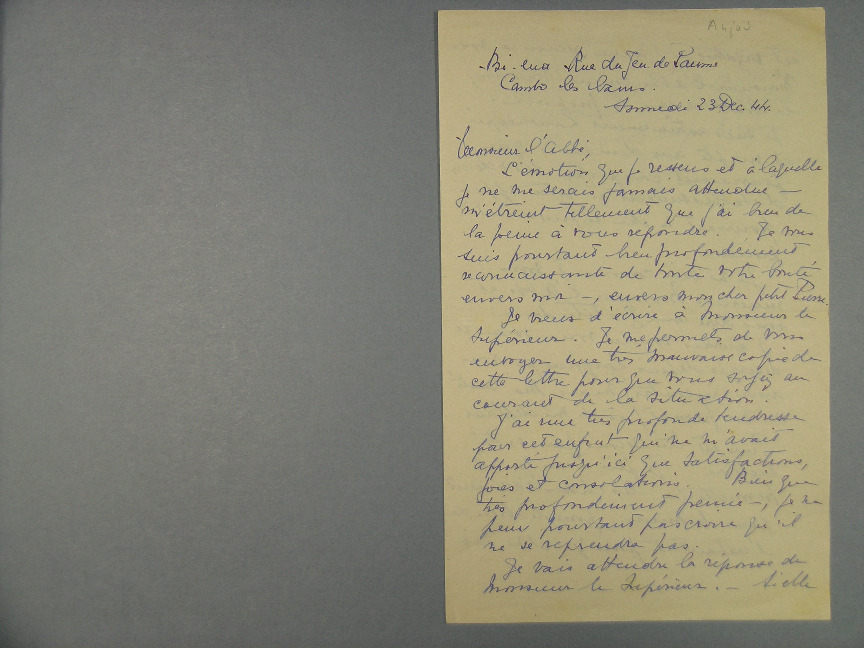 Anjou
Rue du Jeu de Paume
Cambo les bains.
Samedi 23 Dec. 44.
Monsieur l'Abbé,
L'émotion que je ressens et à laquelle
je ne me serais jamais attendue –
m'étreint tellement que j'ai bien de
la peine à vous répondre. Je vous
suis pourtant bien profondément
reconnaissante de toute votre bonté
envers moi –, envers mon cher petit Pierre.
Je viens d'écrire à Monsieur le
Supérieur. Je me permets de vous
envoyer une très mauvaise copie de
cette lettre pour que vous soyez au
courant de la situation.
J'ai une très profonde tendresse
pour cet enfant qui ne m'avait
apporté jusqu'ici que satisfactions,
joies et consolations. Bien que
très profondément peinée –, je ne
peux pourtant pas croire qu'il
ne se reprendra pas.
Je vais attendre la réponse de
Monsieur le Supérieur. – Si elle